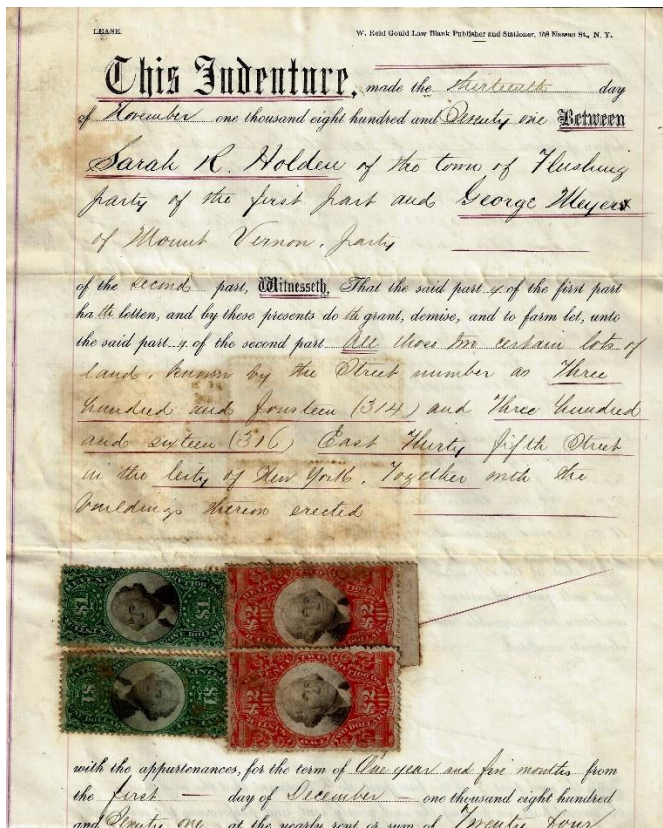 LEASE.
W. Reid Gould Law Blank Publisher and Stationer, 168 Nassau St., N. Y.
This Indenture, made the thirteenth day
of November one thousand eight hundred and Seventy one Between
Sarah R. Holden of the town of Flushing
party of the first part and George Meyers
of Mount Vernon, party
of the second part, Witnesseth, That the said part y of the first part
ha th letten, and by these presents do th grant, demise, and to farm let, unto
the said part y of the second part All those two certain lots of
land, known by the Street number as Three
hundred and fourteen (314) and Three hundred
and sixteen (316) East Thirty fifth Street
in the City of New York. Together with the
buildings thereon erected
$1 $1 ONE DOLLAR
$2 $2 TWO DOLLARS
$1 $1
$2 $2 TWO DOLLARS
with the appurtenances, for the term of One year and five months from
the first day of December one thousand eight hundred
and Seventy one at the yearly rent or sum of Twenty four